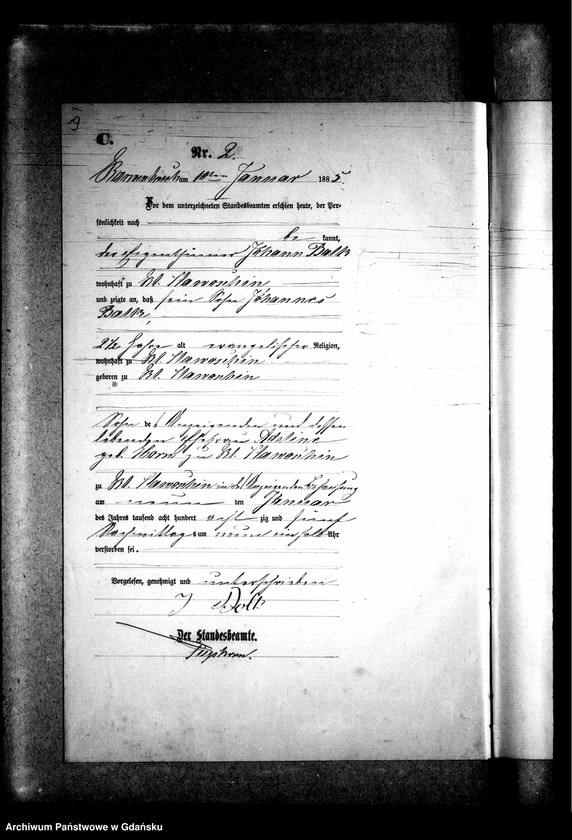 9
C.
Nr. 2.
am 10ten Januar 1885.
Vor dem unterzeichneten Standesbeamten erschien heute, der Per-
sönlichkeit nach
be kannt,
der Eigenthümer Johann Balk
wohnhaft zu Kl.
und zeigte an, daß sein Sohn Johannes
Balk,
2 1/2 Jahre alt evangelischer Religion,
wohnhaft zu Kl.
geboren zu Kl.
Sohn des Anzeigenden und dessen
lebenden Ehefrau
geb. zu Kl.
zu Kl. in des Anzeigenden Behausung
am neun ten Januar
des Jahres tausend acht hundert acht zig und fünf
Vormittags um neun einhalb Uhr
verstorben sei.
Vorgelesen, genehmigt und unterschrieben
J Balk
Der Standesbeamte.
Archiwum Państwowe w Gdańsku